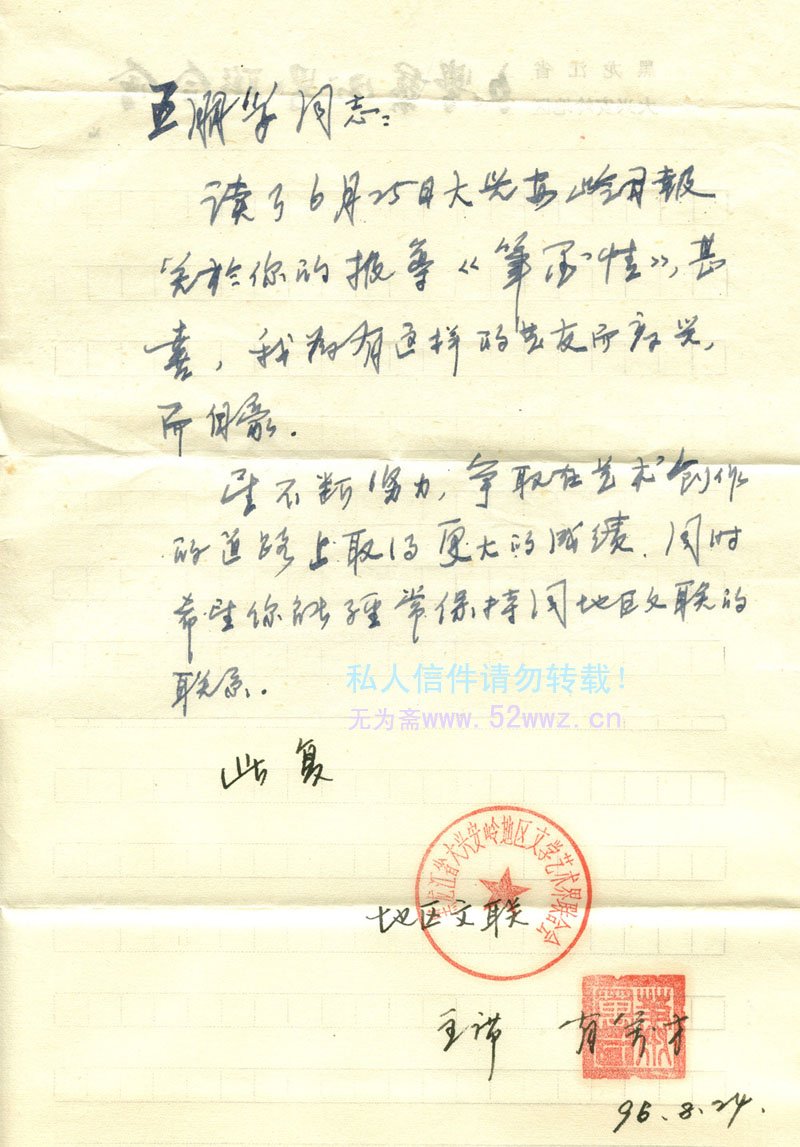 黑龙江省
王鹏学同志：
读了6月25日大兴安岭日报
关於你的报导《笔墨情》,甚
喜，我为有这样的艺友而高兴，
而自豪.
望不断努力，争取在艺术创作
的道路上取得更大的成绩.同时
希望你能经常保持同地区文联的
联系.
私人信件请勿转载！
无为斋www.52wwz.cn
此复
黑龙江省大兴安岭地区文学艺术界联合会
地区文联
主席
96.8.24.